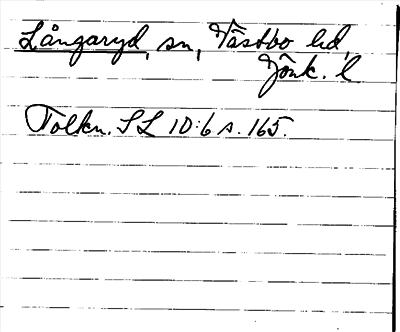 Långaryd, sn, Västbo hd,
Jönk. l
Tolkn. SL 10:6 s. 165.